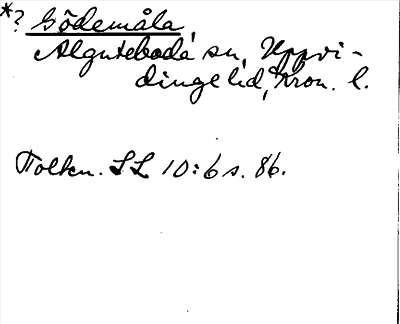 *? Södemåla,
Algutsboda sn, Uppvi-
dinge hd, Kron. l.
Folkn. SL 10:6 s. 86.